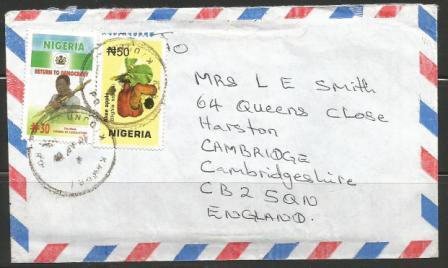 NIGERIA
RETURN TO DEMOCRACY
₦30
₦50
NIGERIA
TO
MRS L E Smith
64 Queens Close
Harston
CAMBRIDGE
Cambridgeshire
CB2 5QN
ENGLAND.